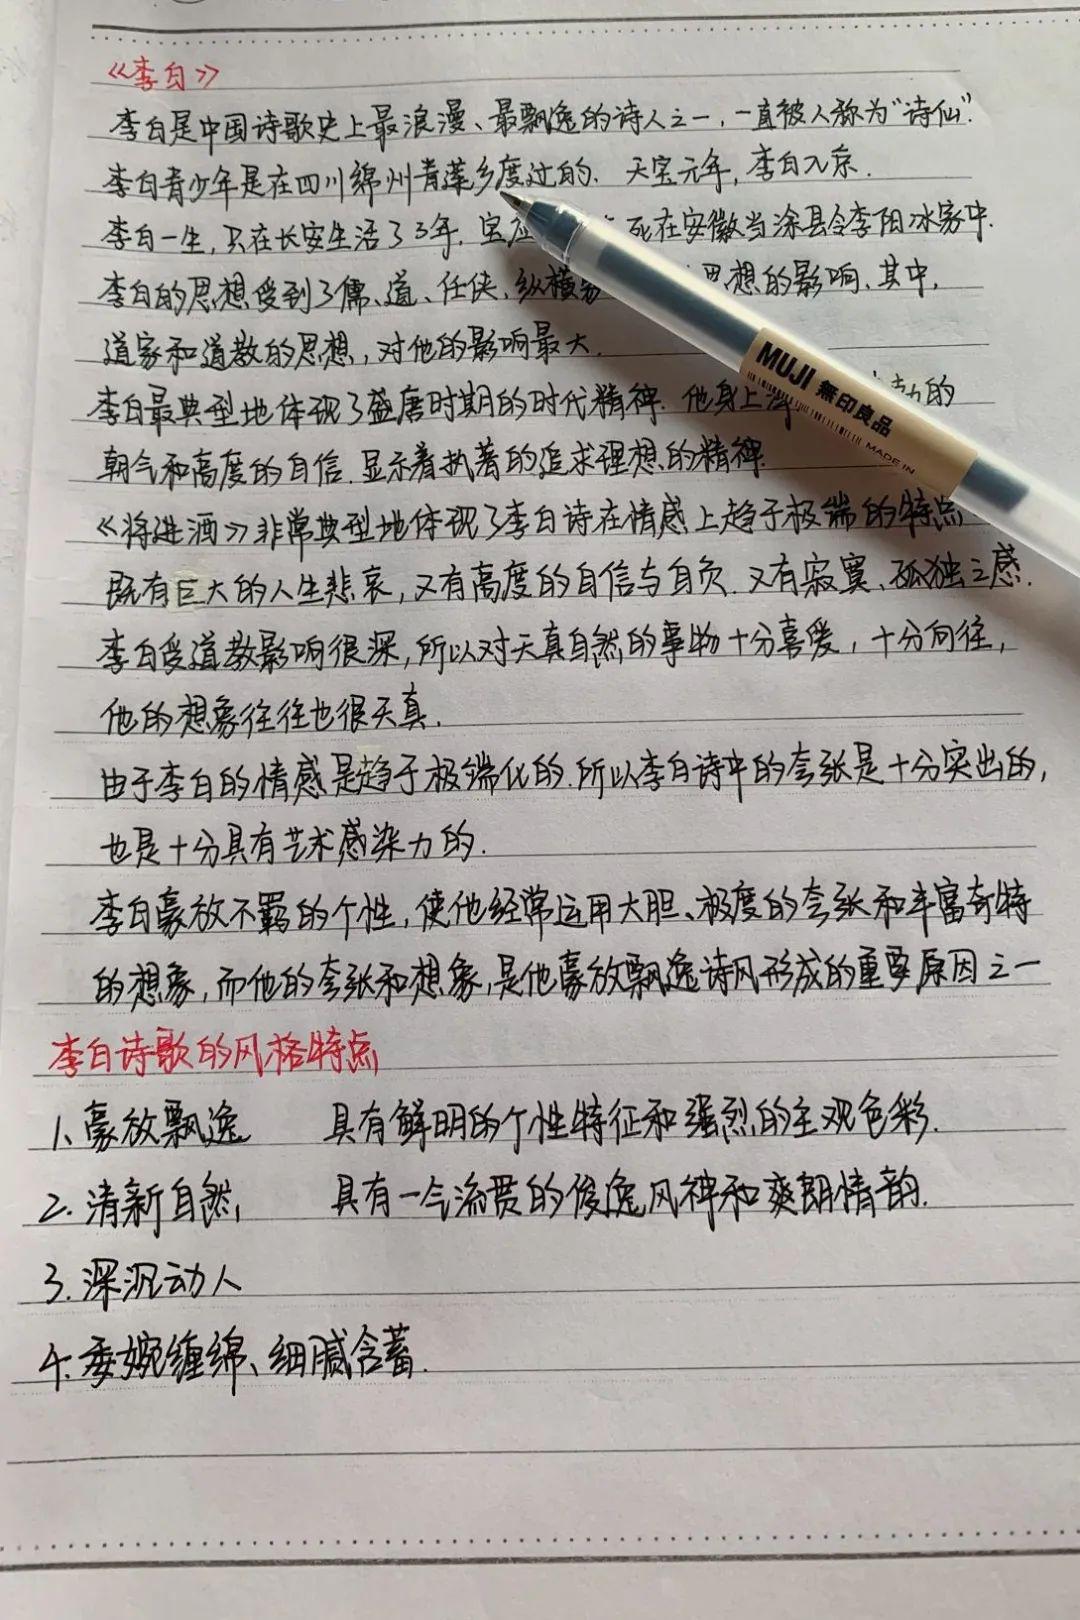 《李白》
李白是中国诗歌史上最浪漫、最飘逸的诗人之一,一直被人称为“诗仙”.
李白青少年是在四川绵州青莲乡度过的. 天宝元年,李白入京.
李白一生,只在长安生活了3年. 宝应 死在安徽当涂县令李阳冰家中.
李白的思想受到了儒、道、任侠、纵横家 思想的影响、其中,
道家和道教的思想,对他的影响最大.
李白最典型地体现了盛唐时期的时代精神. 他身上 勃的
朝气和高度的自信.显示着执著的追求理想的精神.
《将进酒》非常典型地体现了李白诗在情感上趋于极端的特点
既有巨大的人生悲哀,又有高度的自信与自负.又有寂寞、孤独之感.
李白受道教影响很深,所以对天真自然的事物十分喜爱,十分向往,
他的想象往往也很天真.
由于李白的情感是趋于极端化的.所以李白诗中的夸张是十分突出的,
也是十分具有艺术感染力的.
李白豪放不羁的个性,使他经常运用大胆、极度的夸张和丰富奇特
的想象,而他的夸张和想象,是他豪放飘逸诗风形成的重要原因之一
李白诗歌的风格特点
1、豪放飘逸 具有鲜明的个性特征和强烈的主观色彩.
2.清新自然 具有一气流贯的俊逸风神和爽朗情韵.
3.深沉动人
4.委婉缠绵、细腻含蓄.
MUJI 無印良品
MADE IN